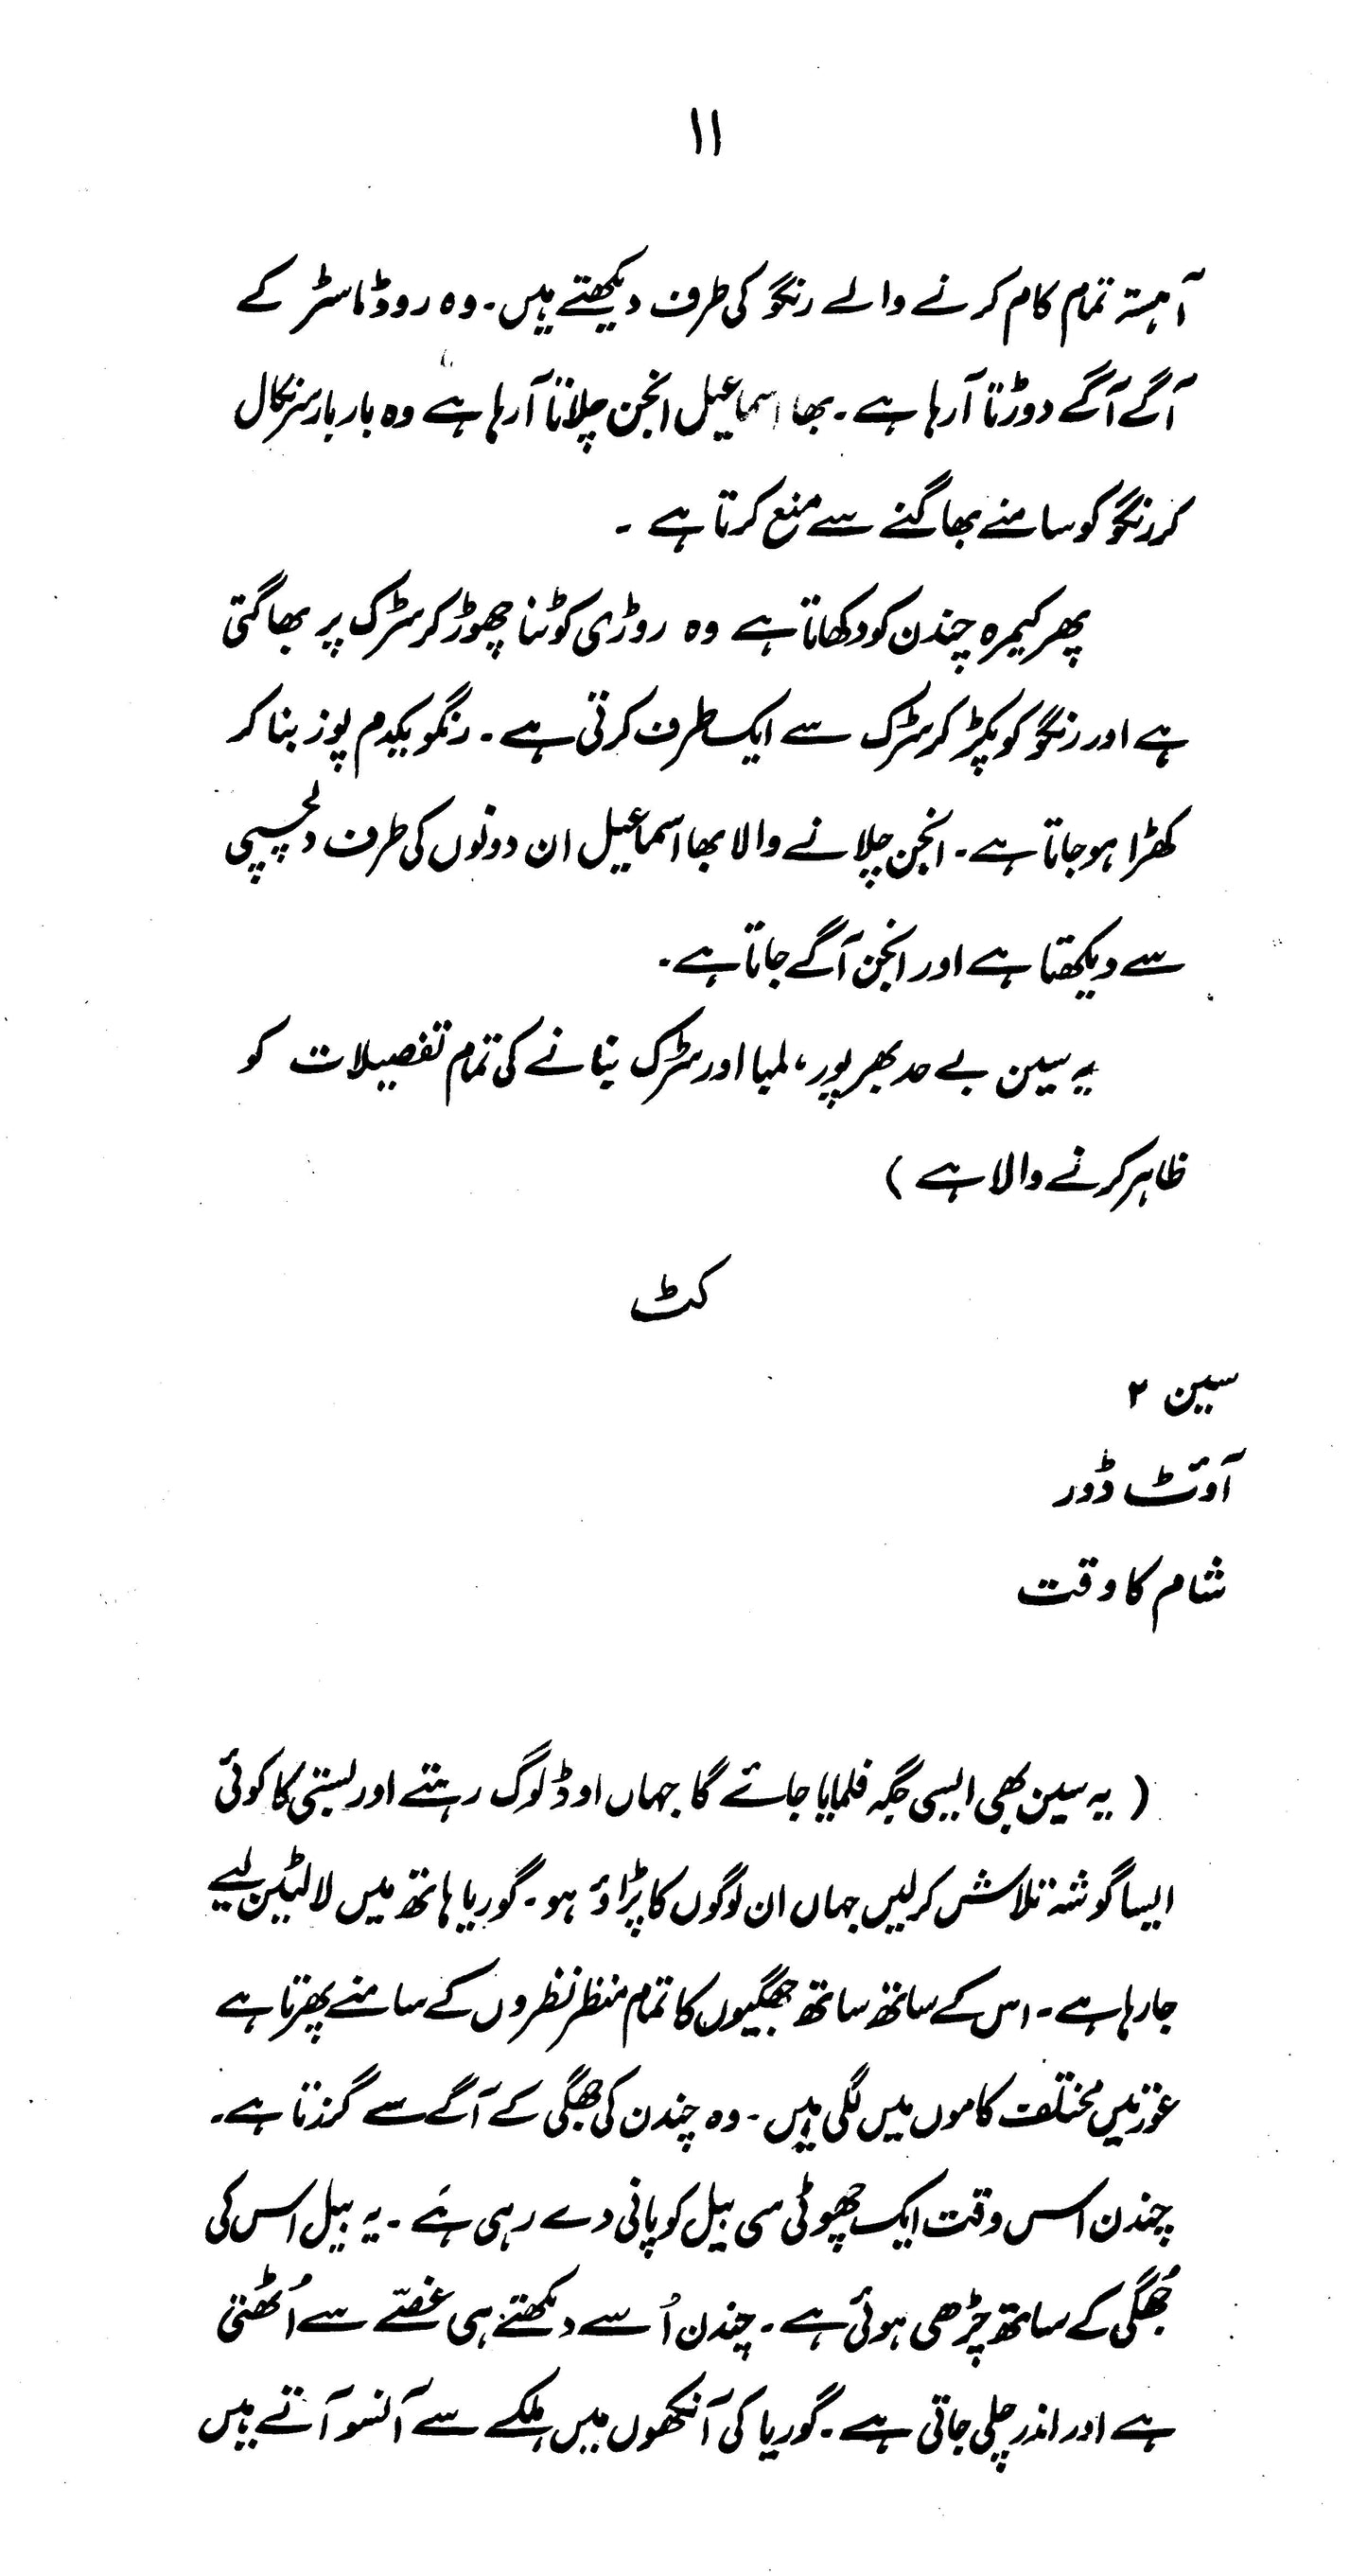 ۱۱
آہستہ تمام کام کرنے والے رنگو کی طرف دیکھتے ہیں۔ وہ روڈ ماسٹر کے
آگے آگے دوڑتا آرہا ہے۔ بھا اسماعیل انجن چلاتا آرہا ہے وہ بار بار سر نکال
کر رنگو کو سامنے بھاگنے سے منع کرتا ہے ۔
پھر کیمرہ چندن کو دکھاتا ہے وہ روڑی کوٹنا چھوڑ کر سڑک پر بھاگتی
ہے اور رنگو کو پکڑ کر سڑک سے ایک طرف کرتی ہے۔ رنگو یکدم پوز بنا کر
کھڑا ہو جاتا ہے۔ انجن چلانے والا بھا اسماعیل ان دونوں کی طرف دلچسپی
سے دیکھتا ہے اور انجن آگے جاتا ہے۔
یہ سین بے حد بھرپور، لمبا اور سڑک بنانے کی تمام تفصیلات کو
ظاہر کرنے والا ہے )
کٹ
سین ۲
آوٹ ڈور
شام کا وقت
( یہ سین بھی ایسی جگہ فلمایا جائے گا جہاں اوڈ لوگ رہتے اور بستی کا کوئی
ایسا گوشہ تلاش کرلیں جہاں ان لوگوں کا پڑاؤ ہو۔ گوریا ہاتھ میں لالٹین لیے
جارہا ہے۔ اس کے ساتھ ساتھ جھگیوں کا تمام منظر نظروں کے سامنے پھرتا ہے
عورتیں مختلف کاموں میں لگی ہیں۔ وہ چندن کی جھگی کے آگے سے گزرتا ہے۔
چندن اس وقت ایک چھوٹی سی بیل کو پانی دے رہی ہے ۔ یہ بیل اس کی
جُھگی کے ساتھ چڑھی ہوئی ہے۔ چندن اُسے دیکھتے ہی غصّے سے اُٹھتی
ہے اور اندر چلی جاتی ہے۔ گوریا کی آنکھوں میں ہلکے سے آنسو آتے ہیں